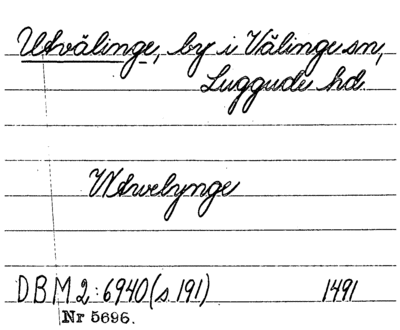 Utvälinge, by i Välinge sn,
Luggude hd.
Utwelynge
DBM 2:6940 (s 191) 1491
Nr 5696.